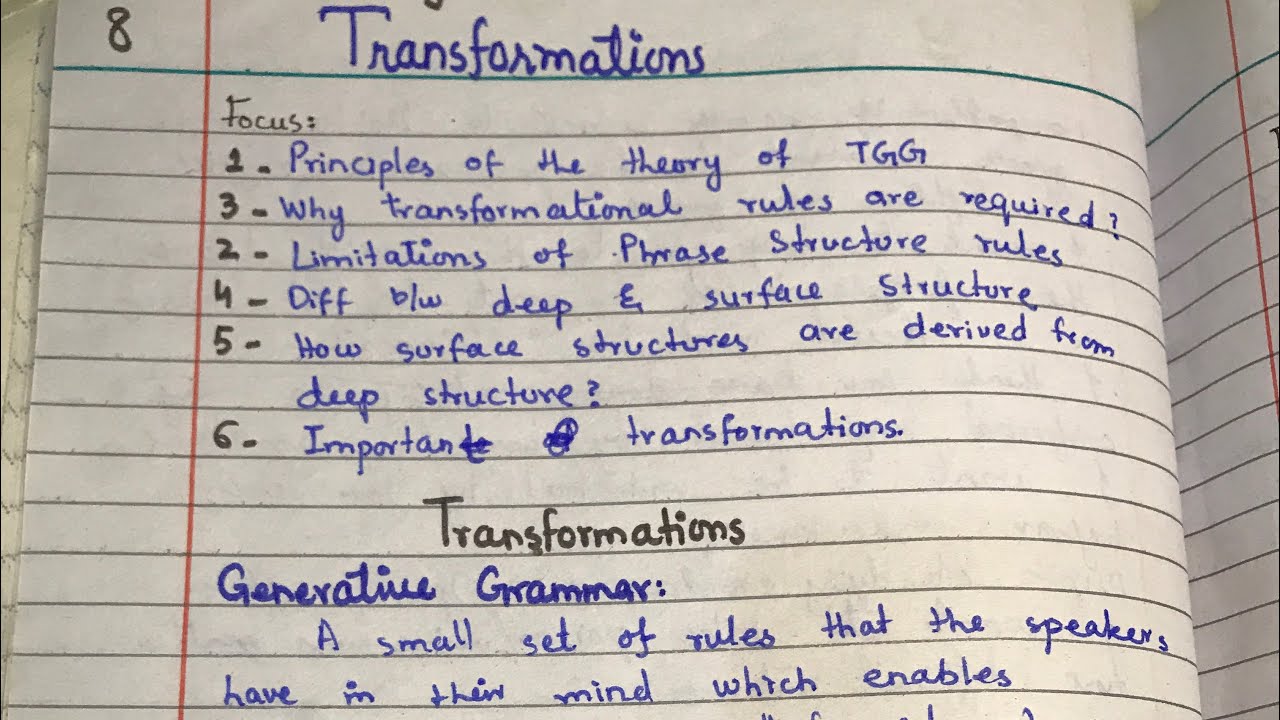 8
Transformations
Focus:
1 - Principles of the theory of TGG
3 - Why transformational rules are required?
2 - Limitations of Phrase Structure rules
4 - Diff b/w deep & surface structure
5 - How surface structures are derived from
deep structure?
6 - Important transformations.
Transformations
Generative Grammar:
A small set of rules that the speakers
have in their mind which enables